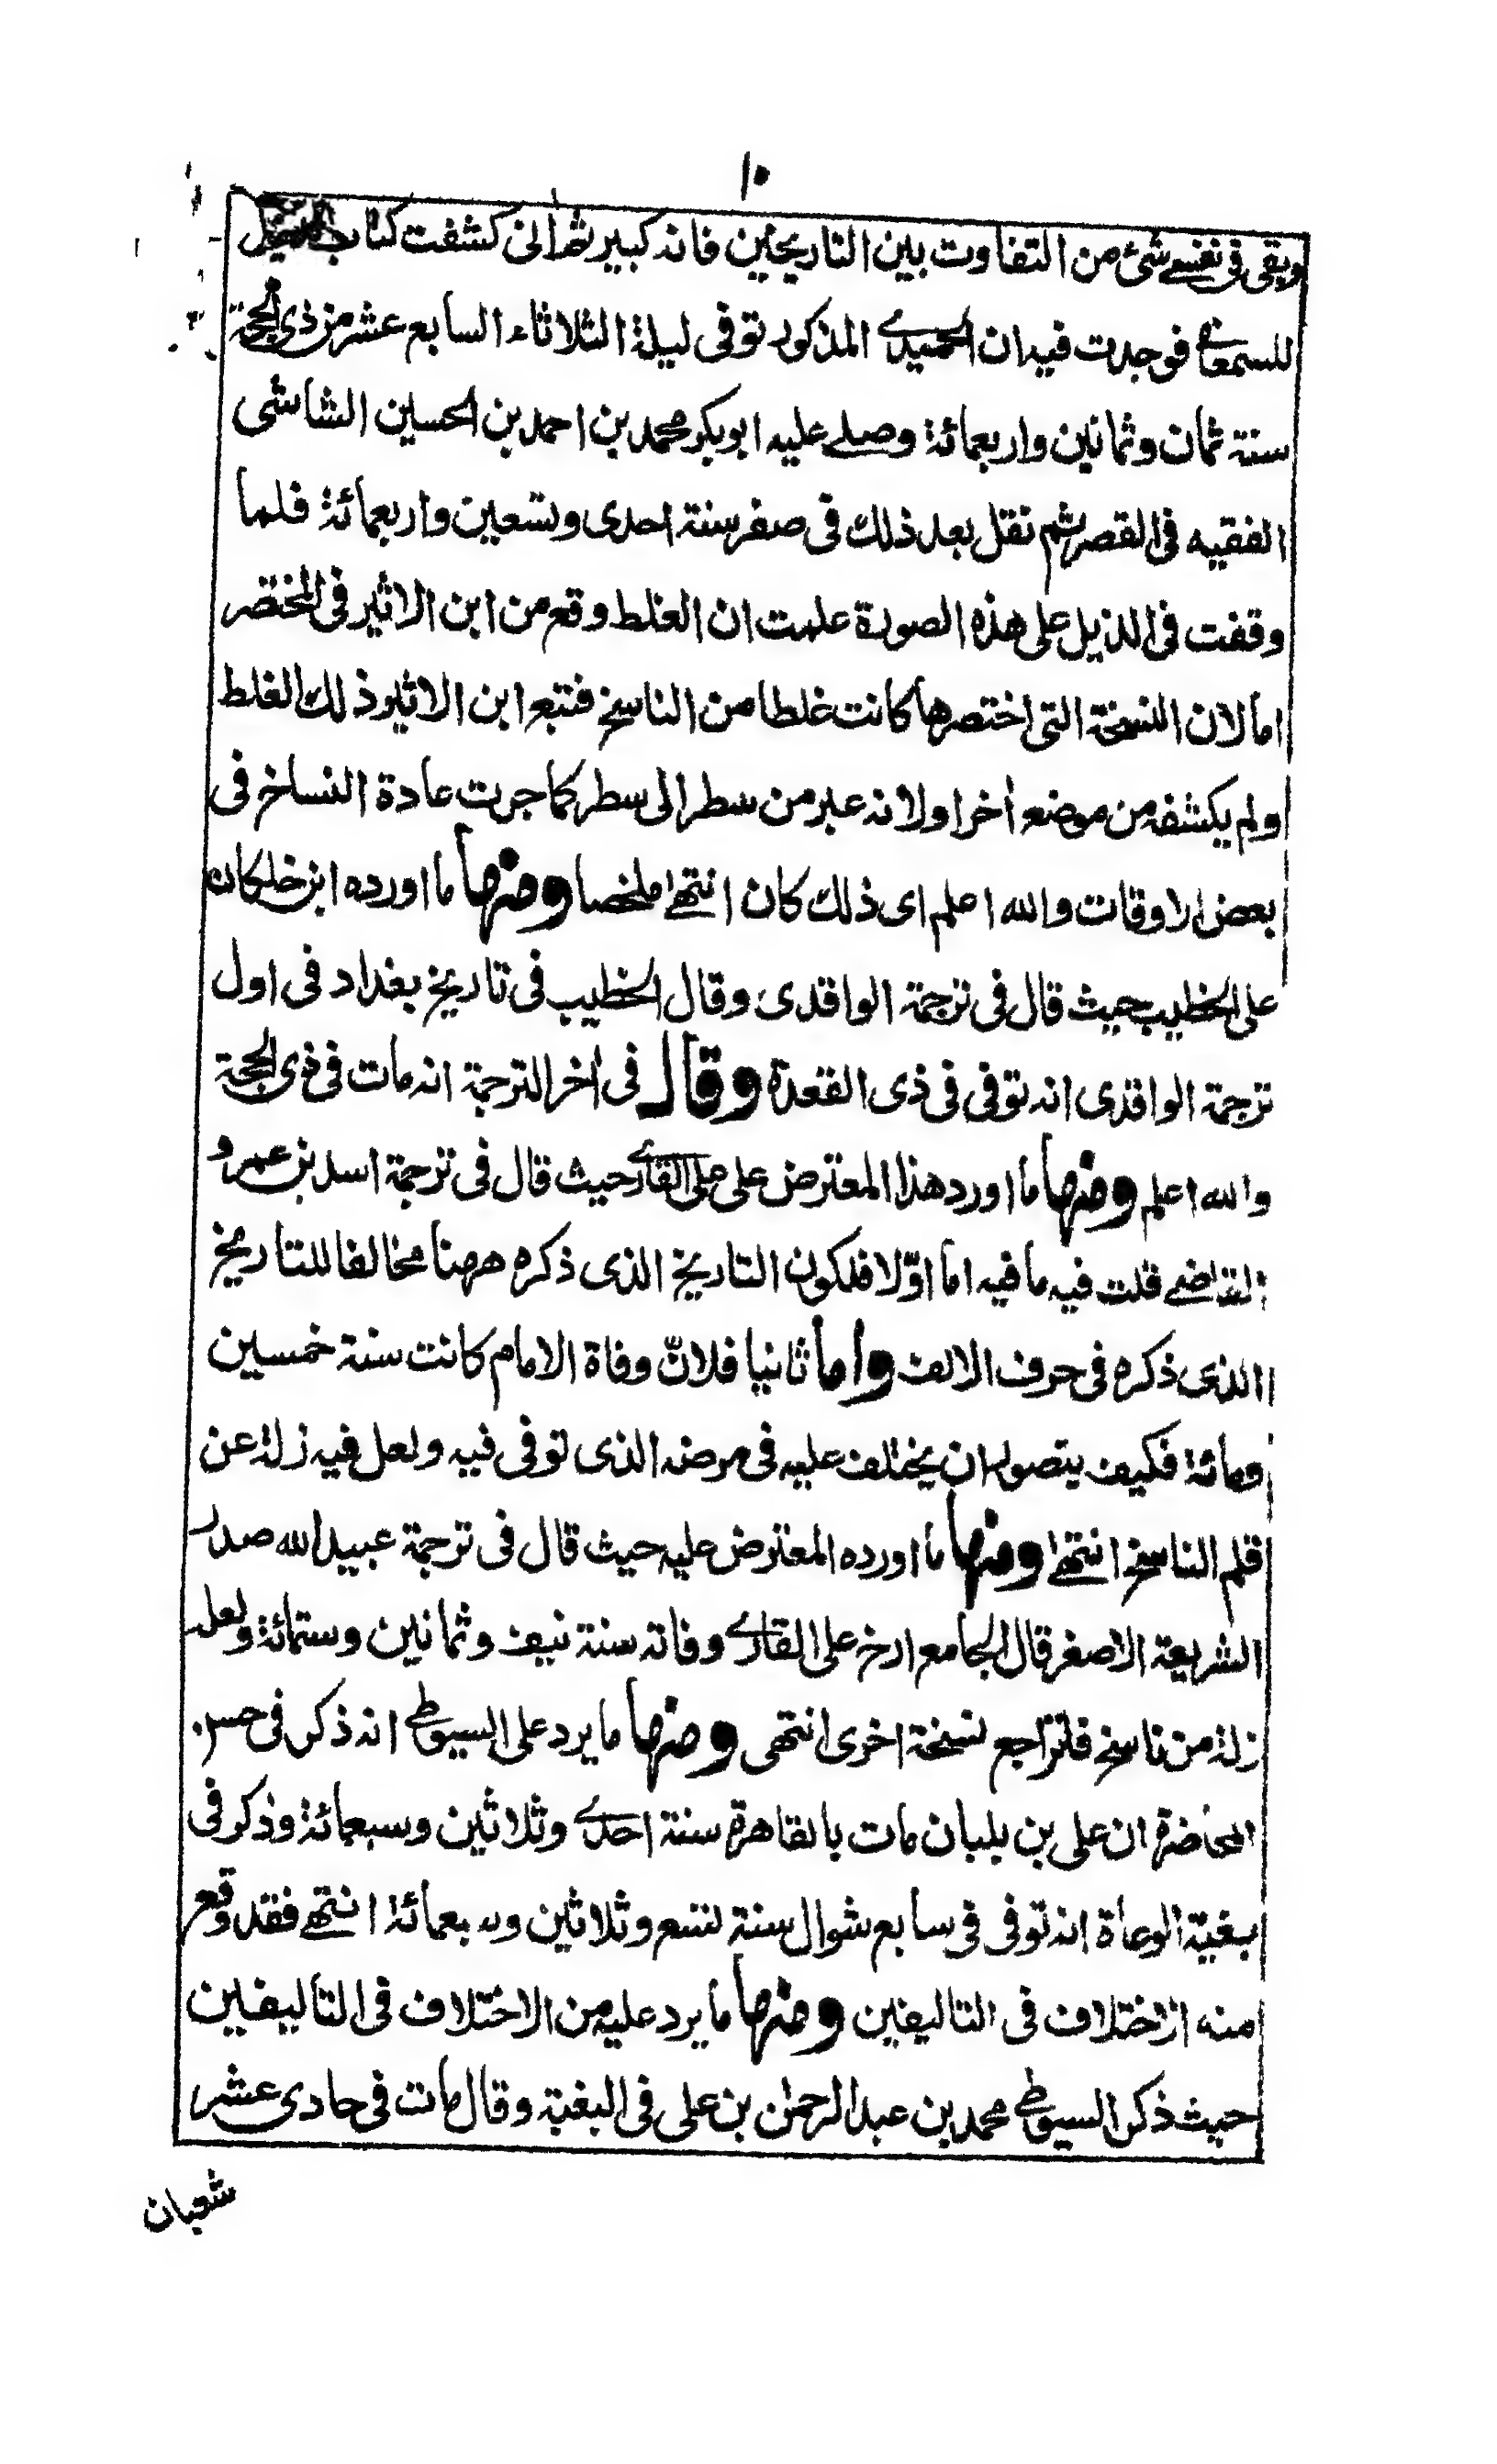 ١٠
وبقى فى نفسے شئ من التفاوت بين التاريخين فانه كبير ثم انى كشفت كتاب الذيل
للسمعانے فوجدت فيه ان الحميدے المذكور توفى ليلة الثلاثاء السابع عشر من ذى الحجة
سنة ثمان وثمانين واربعمائة وصلے عليه ابو بكر محمد بن احمد بن الحسين الشاشى
الفقيه فى القصر ثم نقل بعد ذلك فى صفر سنة احدى وتسعين واربعمائة فلما
وقفت فى الذيل على هذه الصورة علمت ان الغلط وقع من ابن الاثير فى المختصر
اما لان النسخة التى اختصرها كانت غلطا من الناسخ فتبع ابن الاثير ذلك الغلط
ولم يكشفه من موضع اٰخر او لانه عبر من سطر الى سطر كما جرت عادة النساخ فى
بعض الاوقات والله اعلم اى ذلك كان انتهے ملخصا ومنها ما اورده ابن خلكان
على الخطيب حيث قال فى ترجمة الواقدى وقال الخطيب فى تاريخ بغداد فى اول
ترجمة الواقدى انه توفى فى ذى القعدة وقال فى اٰخر الترجمة انه مات فى ذى الحجة
والله اعلم ومنها ما اورد هذا المعترض على على القارے حيث قال فى ترجمة اسد بن عمرو
القاضے قلت فيه ما فيه اما اوّلا فلكون التاريخ الذى ذكره ههنا مخالفا للتاريخ
الذى ذكره فى حرف الالف واما ثانيا فلانّ وفاة الامام كانت سنة خمسين
ومائة فكيف يتصور ان يختلف عليه فى مرضه الذى توفى فيه ولعل فيه زلة عن
قلم الناسخ انتهے ومنها ما اورده المعترض عليه حيث قال فى ترجمة عبيد الله صدر
الشريعة الاصغر قال الجامع ارخ على القارے وفاته سنة نيف وثمانين وستمائة ولعله
زلة من ناسخ فلتراجع نسخة اخرى انتهى ومنها ما يرد على السيوطے انه ذكر فى حسن
المحاضرة ان على بن بلبان مات بالقاهرة سنة احدے وثلاثين وسبعمائة وذكر فى
بغية الوعاة انه توفى فى سابع شوال سنة تسع وثلاثين وسبعمائة انتهے فقد وقع
منه الاختلاف فى التاليفين ومنها ما يرد عليه من الاختلاف فى التاليفين
حيث ذكر السيوطے محمد بن عبد الرحمٰن بن على فى البغية وقال مات فى حادى عشر
شعبان